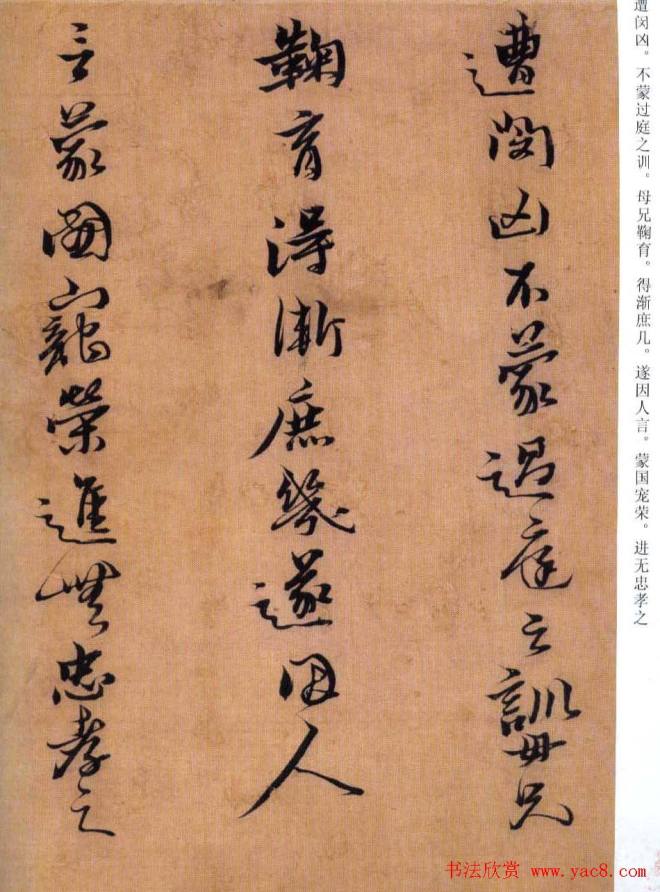 遭闵凶。不蒙过庭之训。母兄鞠育。得渐庶几。遂因人言。蒙国宠荣。进无忠孝之
遭閔凶不蒙過庭之訓母兄
鞠育得漸庶幾遂因人
言蒙國寵榮進無忠孝之
书法欣赏 www.yac8.com